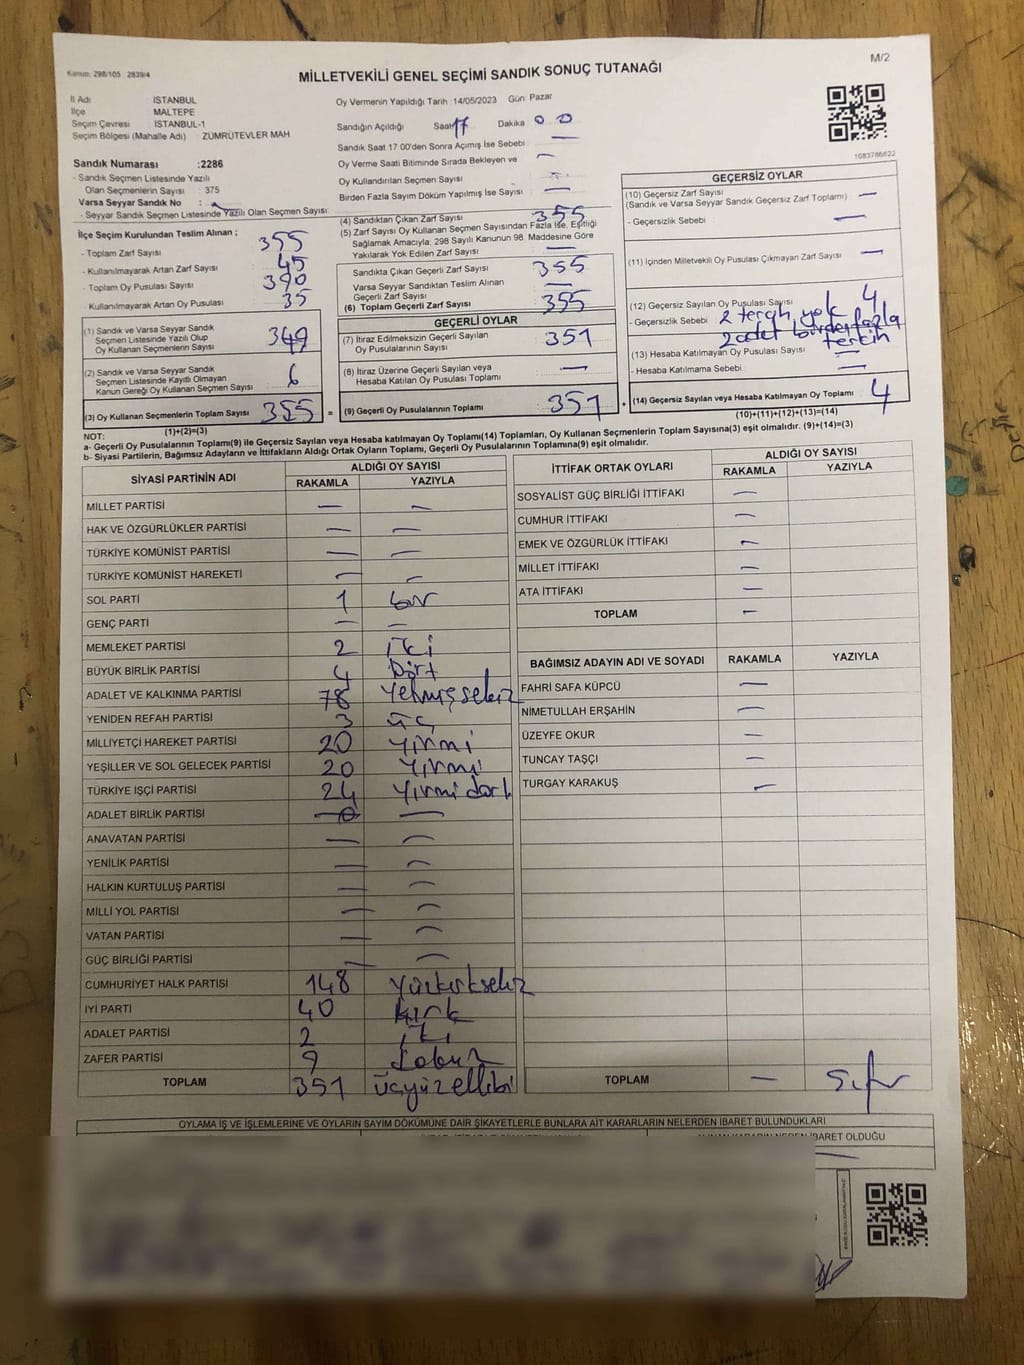 Kanun: 298/105 2839/4
M/2
MİLLETVEKİLİ GENEL SEÇİMİ SANDIK SONUÇ TUTANAĞI
İl Adı İSTANBUL
İlçe MALTEPE
Seçim Çevresi İSTANBUL-1
Seçim Bölgesi (Mahalle Adı) ZÜMRÜTEVLER MAH.
Sandık Numarası :2286
- Sandık Seçmen Listesinde Yazılı
Olan Seçmenlerin Sayısı : 375
Varsa Seyyar Sandık No : —
- Seyyar Sandık Seçmen Listesinde Yazılı Olan Seçmen Sayısı
İlçe Seçim Kurulundan Teslim Alınan ;
- Toplam Zarf Sayısı : 355
- Kullanılmayarak Artan Zarf Sayısı : 45
- Toplam Oy Pusulası Sayısı : 390
Kullanılmayarak Artan Oy Pusulası : 35
(1) Sandık ve Varsa Seyyar Sandık
Seçmen Listesinde Yazılı Olup
Oy Kullanan Seçmenlerin Sayısı 349
(2) Sandık ve Varsa Seyyar Sandık
Seçmen Listesinde Kayıtlı Olmayan
Kanun Gereği Oy Kullanan Seçmen Sayısı 6
(3) Oy Kullanan Seçmenlerin Toplam Sayısı 355 =
(1)+(2)=(3)
Oy Vermenin Yapıldığı Tarih :14/05/2023 Gün Pazar
Sandığın Açıldığı Saat 17 Dakika 00
Sandık Saat 17.00'den Sonra Açılmış İse Sebebi : —
Oy Verme Saati Bitiminde Sırada Bekleyen ve —
Oy Kullandırılan Seçmen Sayısı :
Birden Fazla Sayım Döküm Yapılmış İse Sayısı : —
(4) Sandıktan Çıkan Zarf Sayısı 355
(5) Zarf Sayısı Oy Kullanan Seçmen Sayısından Fazla İse, Eşitliği
Sağlamak Amacıyla, 298 Sayılı Kanunun 98. Maddesine Göre
Yakılarak Yok Edilen Zarf Sayısı —
Sandıkta Çıkan Geçerli Zarf Sayısı 355
Varsa Seyyar Sandıktan Teslim Alınan
Geçerli Zarf Sayısı —
(6) Toplam Geçerli Zarf Sayısı 355
GEÇERLİ OYLAR
(7) İtiraz Edilmeksizin Geçerli Sayılan
Oy Pusulalarının Sayısı 351
(8) İtiraz Üzerine Geçerli Sayılan veya
Hesaba Katılan Oy Pusulası Toplamı —
(9) Geçerli Oy Pusulalarının Toplamı 351 +
1083766622
GEÇERSİZ OYLAR
(10) Geçersiz Zarf Sayısı —
(Sandık ve Varsa Seyyar Sandık Geçersiz Zarf Toplamı)
- Geçersizlik Sebebi : —
(11) İçinden Milletvekili Oy Pusulası Çıkmayan Zarf Sayısı : —
(12) Geçersiz Sayılan Oy Pusulası Sayısı : 4
- Geçersizlik Sebebi 2 tercih yok
2 adet birden fazla
tercih
(13) Hesaba Katılmayan Oy Pusulası Sayısı : —
- Hesaba Katılmama Sebebi : —
(14) Geçersiz Sayılan veya Hesaba Katılmayan Oy Toplamı 4
(10)+(11)+(12)+(13)=(14)
NOT:
a- Geçerli Oy Pusulalarının Toplamı(9) ile Geçersiz Sayılan veya Hesaba katılmayan Oy Toplamı(14) Toplamları, Oy Kullanan Seçmenlerin Toplam Sayısına(3) eşit olmalıdır. (9)+(14)=(3)
b- Siyasi Partilerin, Bağımsız Adayların ve İttifakların Aldığı Ortak Oyların Toplamı, Geçerli Oy Pusulalarının Toplamına(9) eşit olmalıdır.
SİYASİ PARTİNİN ADI ALDIĞI OY SAYISI
RAKAMLA YAZIYLA
MİLLET PARTİSİ — —
HAK VE ÖZGÜRLÜKLER PARTİSİ — —
TÜRKİYE KOMÜNİST PARTİSİ — —
TÜRKİYE KOMÜNİST HAREKETİ — —
SOL PARTİ 1 bir
GENÇ PARTİ — —
MEMLEKET PARTİSİ 2 iki
BÜYÜK BİRLİK PARTİSİ 4 Dört
ADALET VE KALKINMA PARTİSİ 78 Yetmişsekiz
YENİDEN REFAH PARTİSİ 3 üç
MİLLİYETÇİ HAREKET PARTİSİ 20 Yirmi
YEŞİLLER VE SOL GELECEK PARTİSİ 20 Yirmi
TÜRKİYE İŞÇİ PARTİSİ 24 Yirmidört
ADALET BİRLİK PARTİSİ — —
ANAVATAN PARTİSİ — —
YENİLİK PARTİSİ — —
HALKIN KURTULUŞ PARTİSİ — —
MİLLİ YOL PARTİSİ — —
VATAN PARTİSİ — —
GÜÇ BİRLİĞİ PARTİSİ — —
CUMHURİYET HALK PARTİSİ 148 Yüzkırksekiz
İYİ PARTİ 40 kırk
ADALET PARTİSİ 2 iki
ZAFER PARTİSİ 9 Dokuz
TOPLAM 351 üçyüzellibi
İTTİFAK ORTAK OYLARI ALDIĞI OY SAYISI
RAKAMLA YAZIYLA
SOSYALİST GÜÇ BİRLİĞİ İTTİFAKI —
CUMHUR İTTİFAKI —
EMEK VE ÖZGÜRLÜK İTTİFAKI —
MİLLET İTTİFAKI —
ATA İTTİFAKI —
TOPLAM —
BAĞIMSIZ ADAYIN ADI VE SOYADI RAKAMLA YAZIYLA
FAHRİ SAFA KÜPCÜ —
NİMETULLAH ERŞAHİN —
ÜZEYFE OKUR —
TUNCAY TAŞÇI —
TURGAY KARAKUŞ —
TOPLAM — Sıfır
OYLAMA İŞ VE İŞLEMLERİNE VE OYLARIN SAYIM DÖKÜMÜNE DAİR ŞİKAYETLERLE BUNLARA AİT KARARLARIN NELERDEN İBARET BULUNDUKLARI
ALINAN KARARIN NEDEN İBARET OLDUĞU